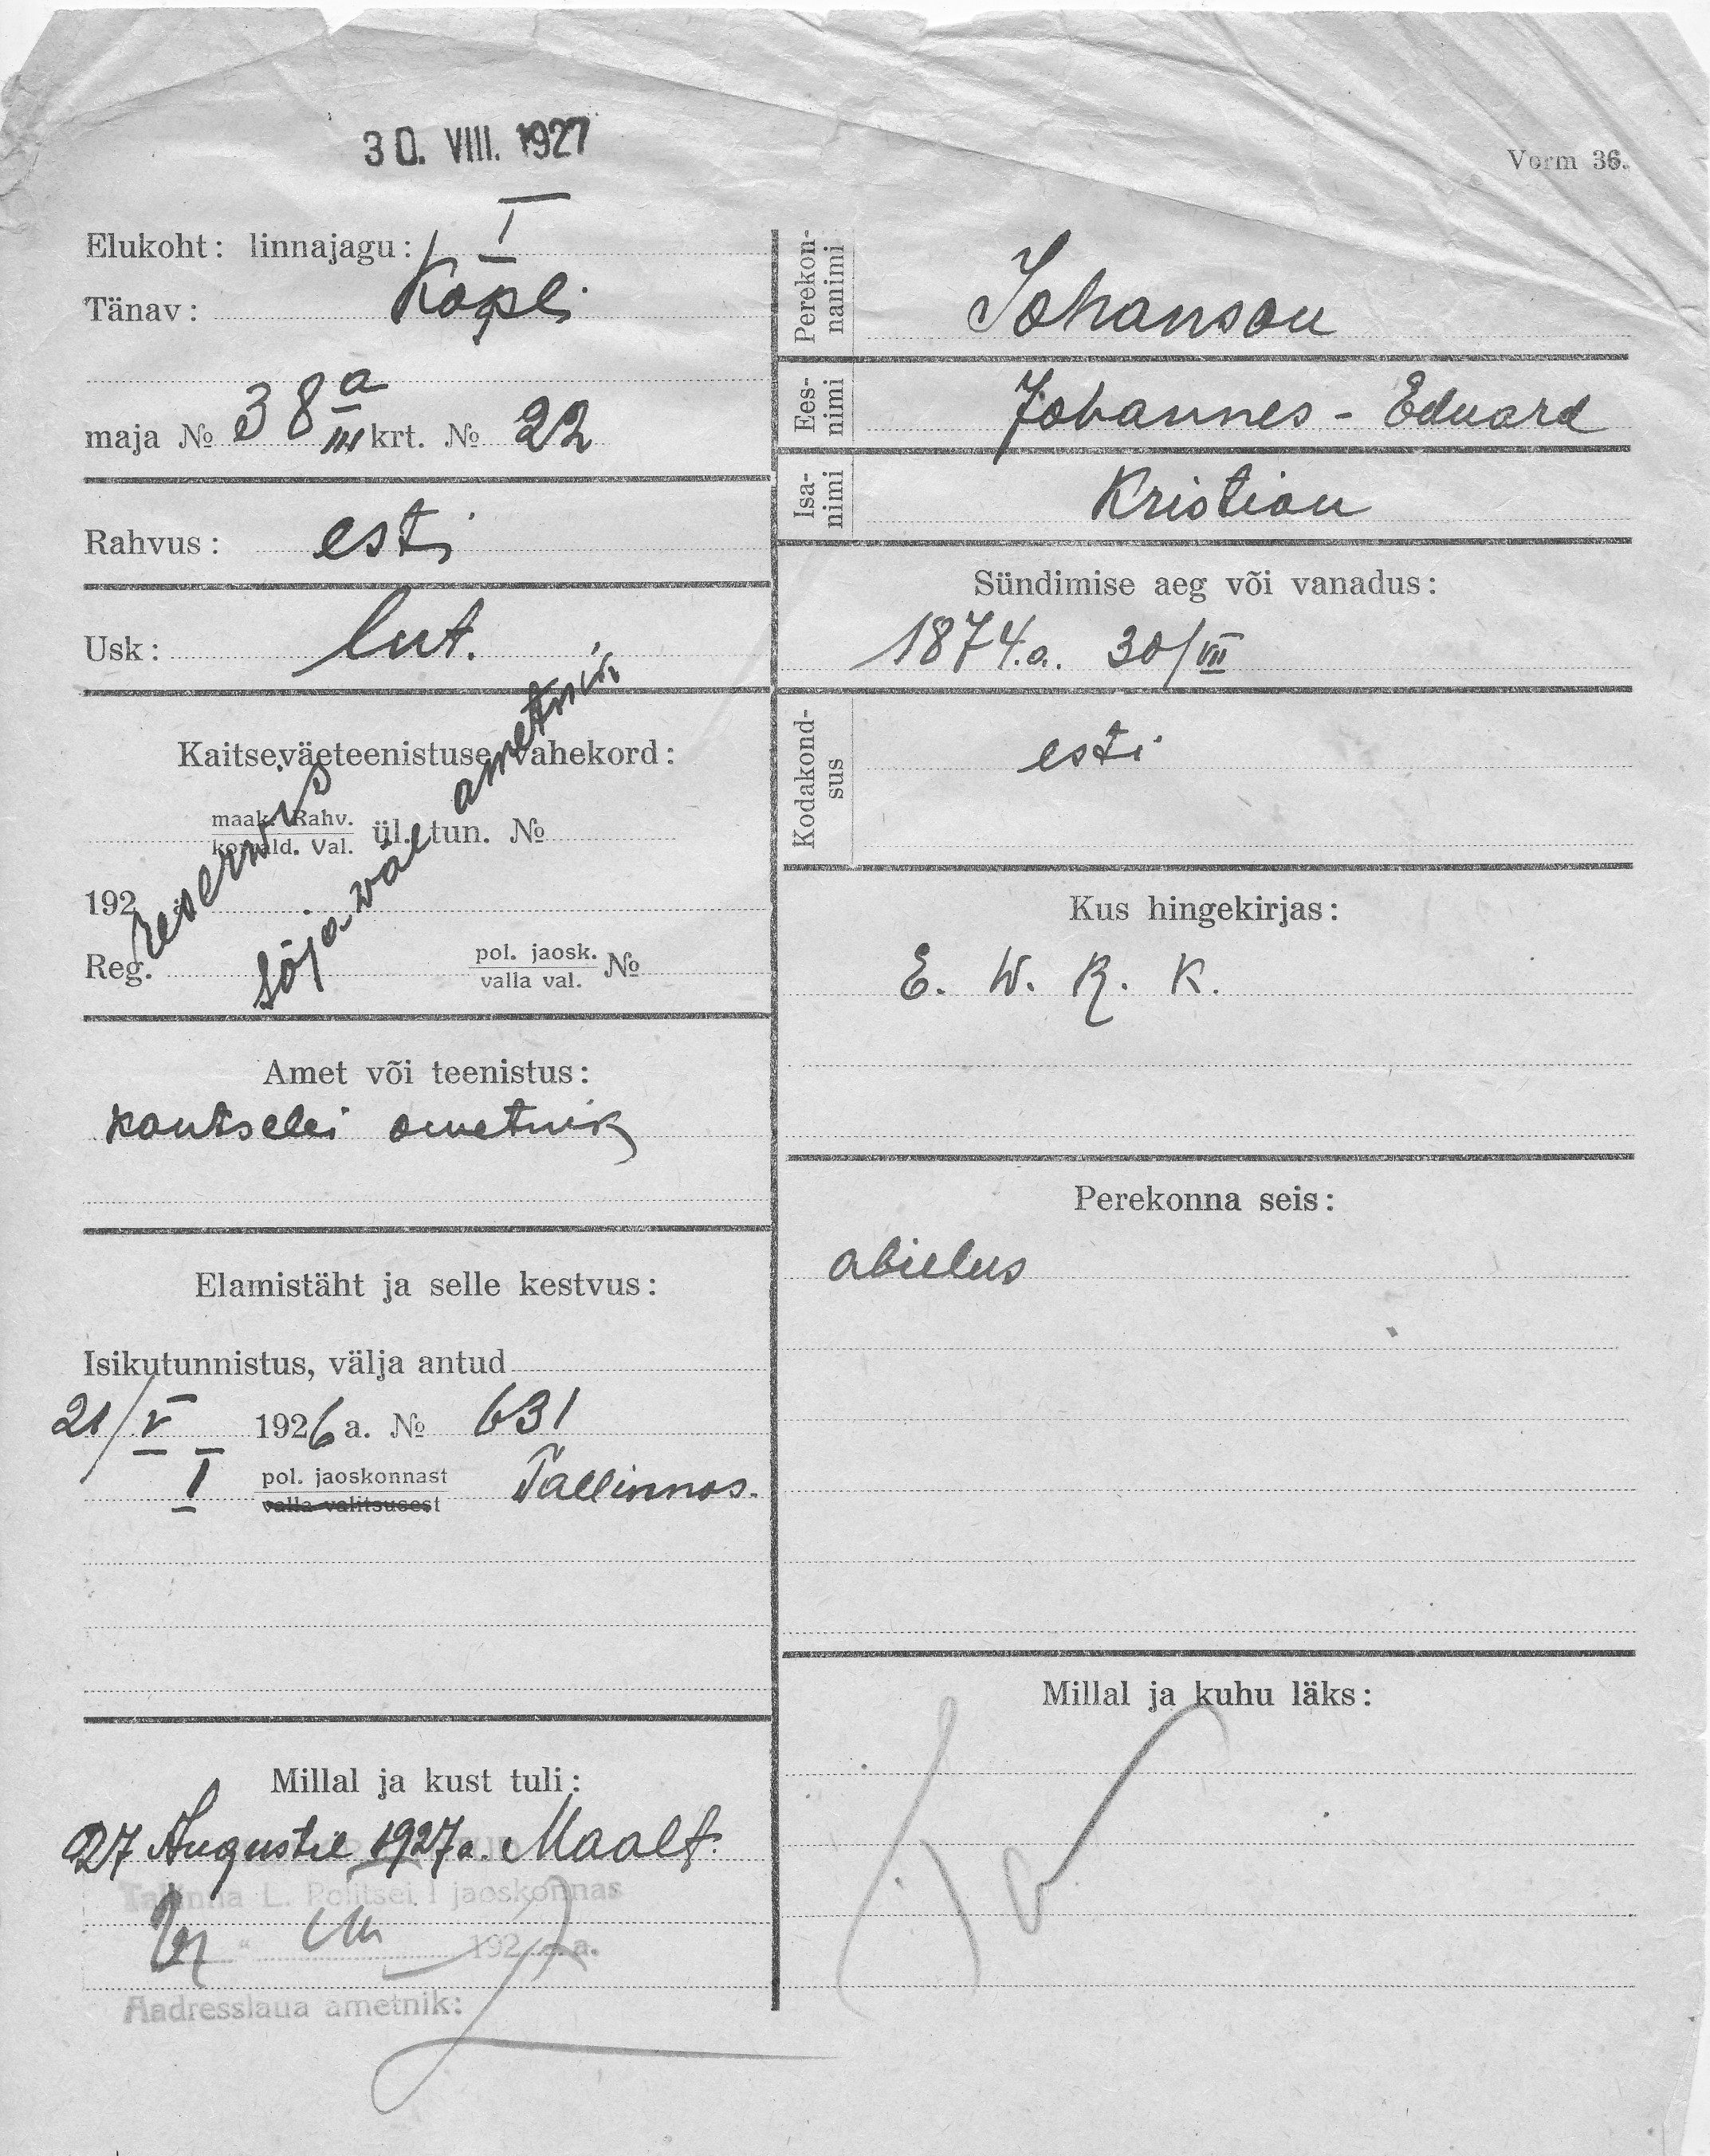 30. VIII. 1927
Vorm 36.
Elukoht: linnajagu: I
Tänav: Kopli
maja № 38a III krt. № 22
Rahvus: esti
Usk: lut.
Kaitseväeteenistuse vahekord:
maak. Rahv.
komald. Val. ül. tun. №
192
Reg. pol. jaosk.
valla val. №
reservis
sõja-väe ametnik
Amet või teenistus:
kantselei ametnik
Elamistäht ja selle kestvus:
Isikutunnistus, välja antud
21/V 1926 a. № 631
I pol. jaoskonnast Tallinnas.
valla valitsusest
Millal ja kust tuli:
27 Augustil 1927 a. Maalt.
Tallinna L. Politsei I jaoskonnas
192 a.
Aadresslaua ametnik:
Perekon-
nanimi Johanson
Ees-
nimi Johannes-Eduard
Isa-
nimi Kristian
Sündimise aeg või vanadus:
1874.a. 30/VII
Kodakond-
sus esti
Kus hingekirjas:
E. W. R. K.
Perekonna seis:
abielus
Millal ja kuhu läks: